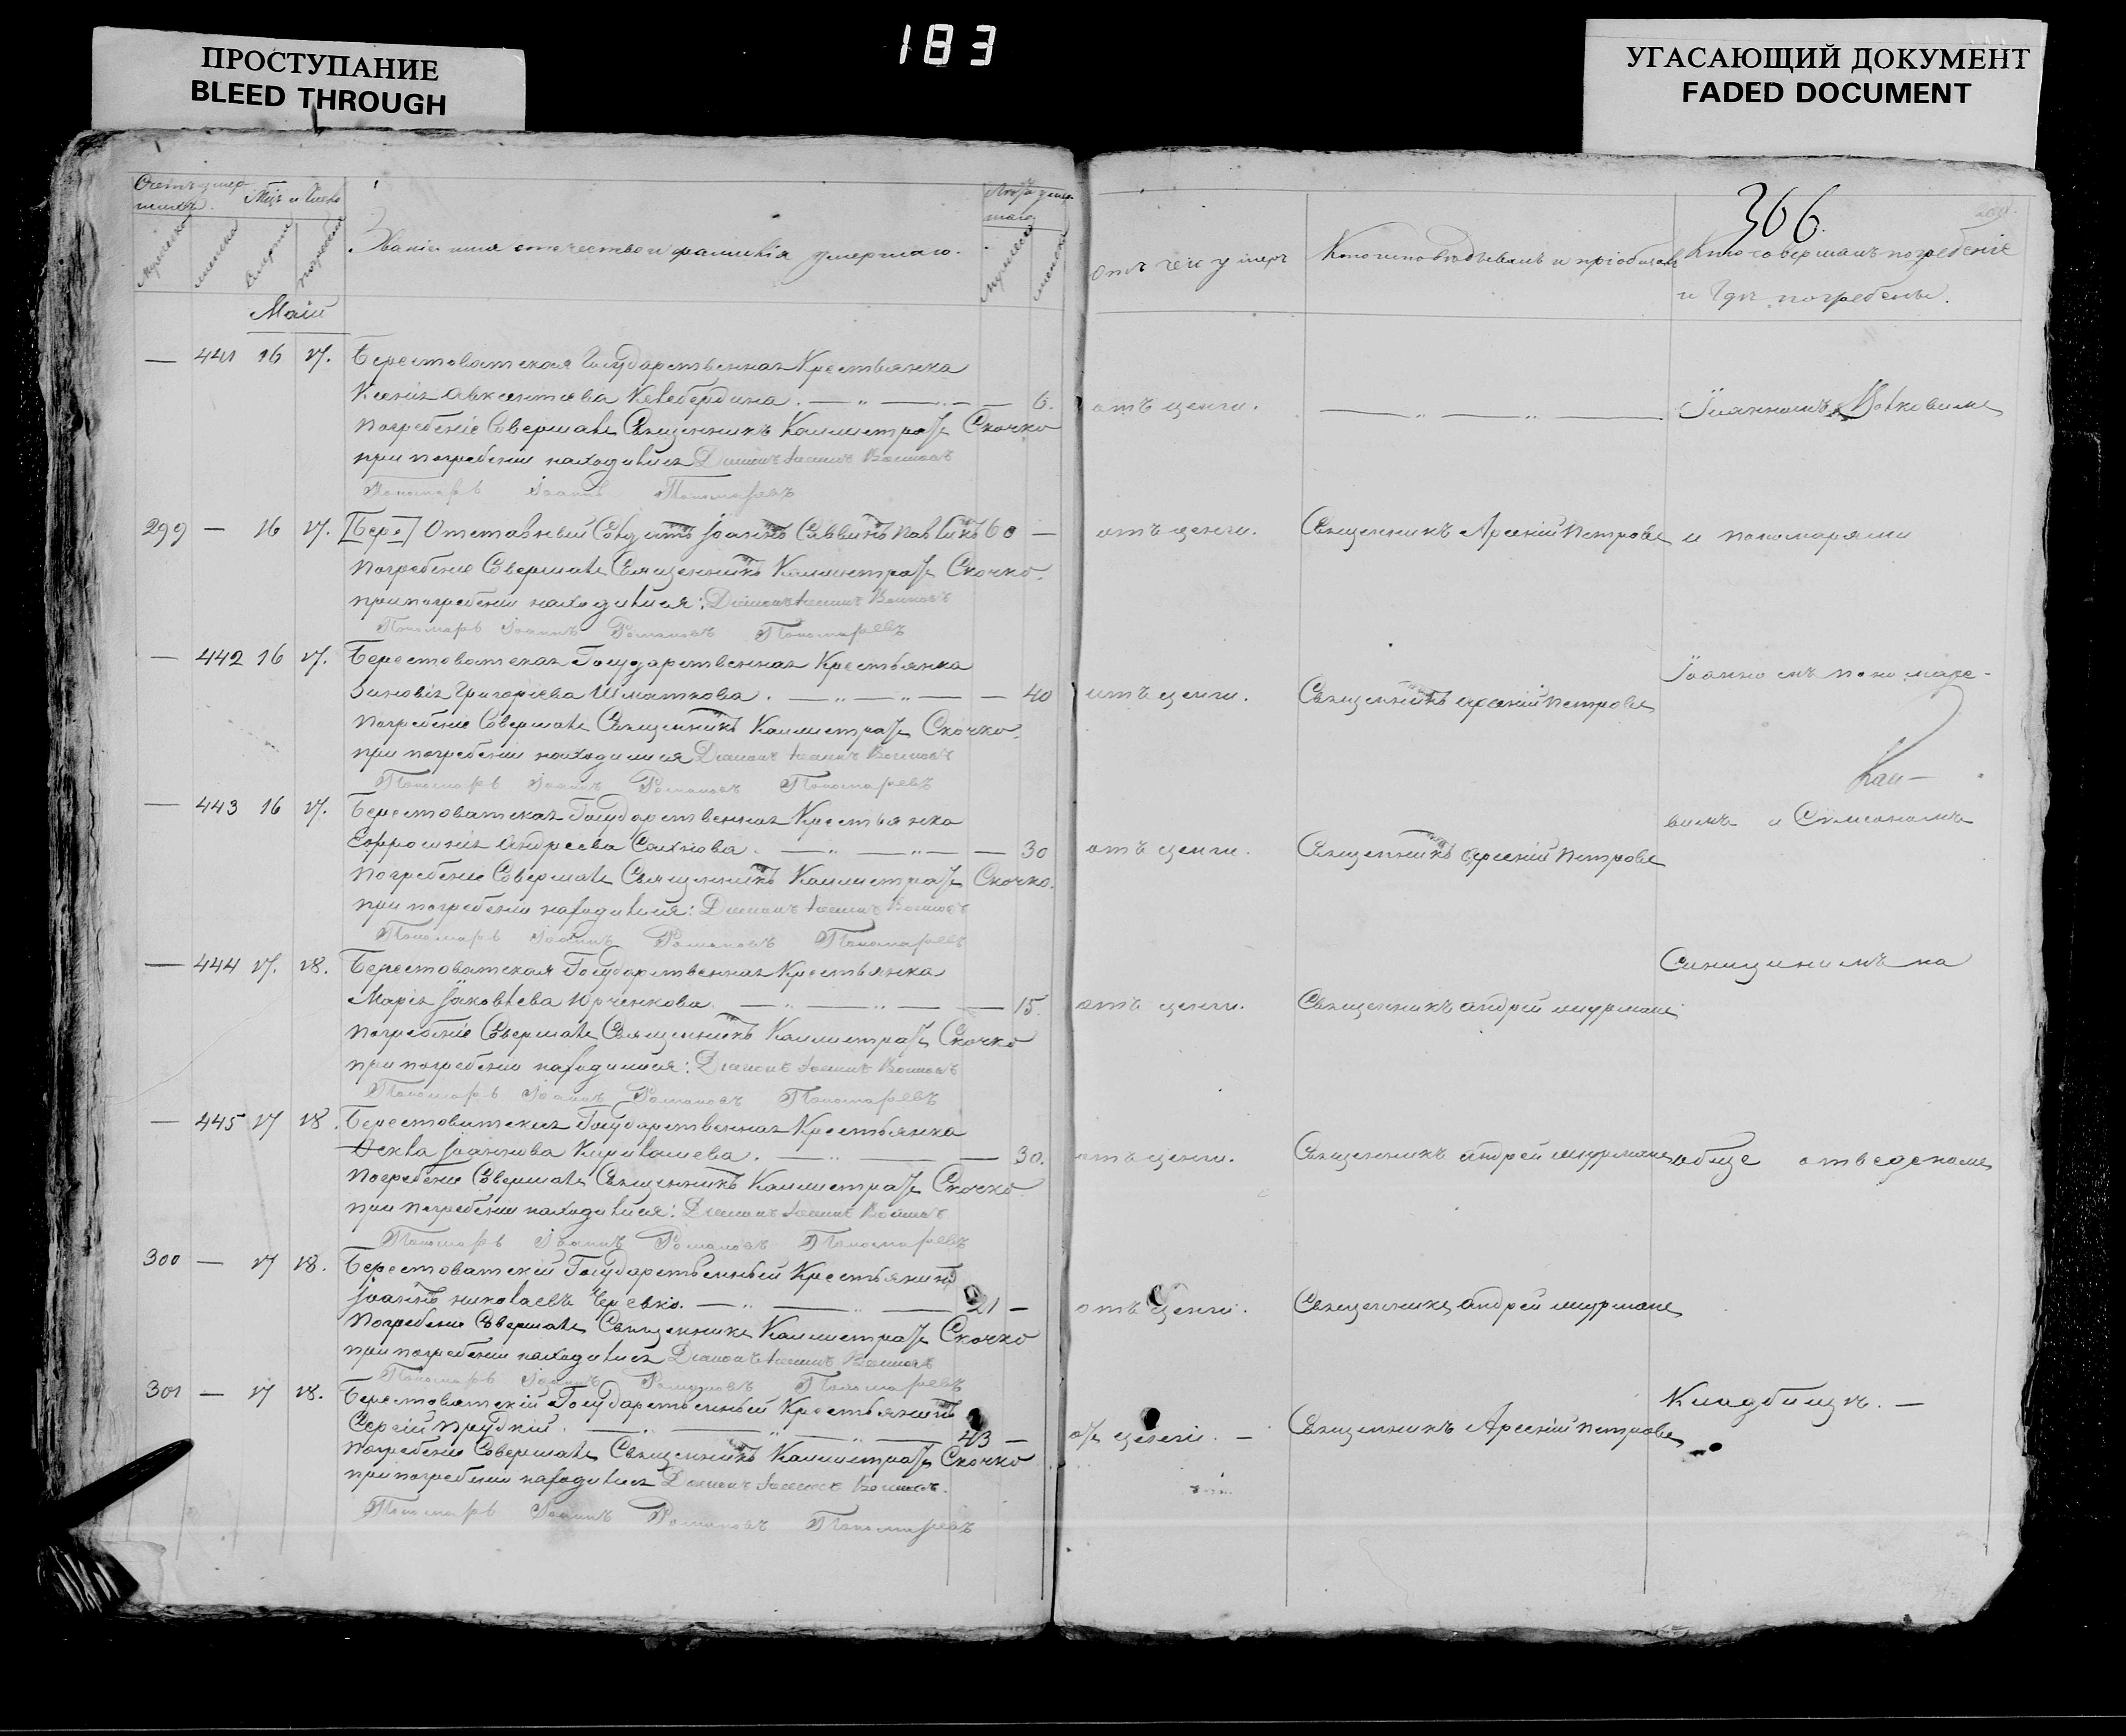 183
ПРОСТУПАНИЕ
BLEED THROUGH
УГАСАЮЩИЙ ДОКУМЕНТ
FADED DOCUMENT
366.
Мѣц и Число
Званіе имя отечество и фамилія умершаго.
Отъ чего умеръ
Кто исповѣдывалъ и пріобщалъ
Кто совершалъ погребеніе
и где погребены.
Маій
— 441 16 17. Берестоватская Государственная Крестьянка
Ксенія Авксентіева — 6. отъ цынги. — Іоанномъ Волковымъ
Погребеніе Совершалъ Священникъ Каллистратъ Скочко
при погребеніи находились Діаконъ Іоаннъ Волковъ
Пономарь Іоаннъ Пономаревъ
299 — 16 17. [Бере] Отставный Солдатъ Іоаннъ Саввинъ Павликъ 60 — отъ цынги. Священникъ Арсеній Петровъ и пономарями
Погребеніе Совершалъ Священникъ Каллистратъ Скочко.
при погребеніи находились: Діаконъ Іоаннъ Волковъ
Пономарь Іоаннъ Романовъ Пономаревъ
— 442 16 17. Берестоватская Государственная Крестьянка
Іоанномъ пономаре-
Зиновія Григоріева Шматкова. — 40 отъ цынги. Священникъ Арсеній Петровъ
Погребеніе Совершалъ Священникъ Каллистратъ Скочко.
при погребеніи находились Діаконъ Іоаннъ Волковъ
Пономарь Іоаннъ Романовъ Пономаревъ
— 443 16 17. Берестоватская Государственная Крестьянка
вымъ и Симеономъ
Софронія Андреева — 30 отъ цынги. Священникъ Арсеній Петровъ
Погребеніе Совершалъ Священникъ Каллистратъ Скочко.
при погребеніи находились: Діаконъ Іоаннъ Волковъ
Пономарь Іоаннъ Романовъ Пономаревъ
— 444 17. 18. Берестоватская Государственная Крестьянка
Синицинымъ на
Марія Іаковлева Юрченкова. — 15. отъ цынги. Священникъ Андрей Шурманъ
Погребеніе Совершалъ Священникъ Каллистратъ Скочко
при погребеніи находились: Діаконъ Іоаннъ Волковъ
Пономарь Іоаннъ Романовъ Пономаревъ
— 445 17 18. Берестоватская Государственная Крестьянка
Ѳекла Іоаннова — 30. отъ цынги. Священникъ Андрей Шурманъ обще отведеномъ
Погребеніе Совершалъ Священникъ Каллистратъ Скочко
при погребеніи находились: Діаконъ Іоаннъ Волковъ
Пономарь Іоаннъ Романовъ Пономаревъ
300 — 17 18. Берестоватскій Государственный Крестьянинъ
Іоаннъ Николаевъ Черевко. — 21 — отъ цынги. Священникъ Андрей Шурманъ
Погребеніе Совершалъ Священникъ Каллистратъ Скочко
при погребеніи находились Діаконъ Іоаннъ Волковъ
Пономарь Іоаннъ Романовъ Пономаревъ
301 — 17 18. Берестоватскій Государственный Крестьянинъ
Кладбищѣ. —
Сергій Прудкій. — 43 — отъ цынги. — Священникъ Арсеній Петровъ
Погребеніе Совершалъ Священникъ Каллистратъ Скочко
при погребеніи находились Діаконъ Іоаннъ Волковъ.
Пономарь Іоаннъ Романовъ Пономаревъ